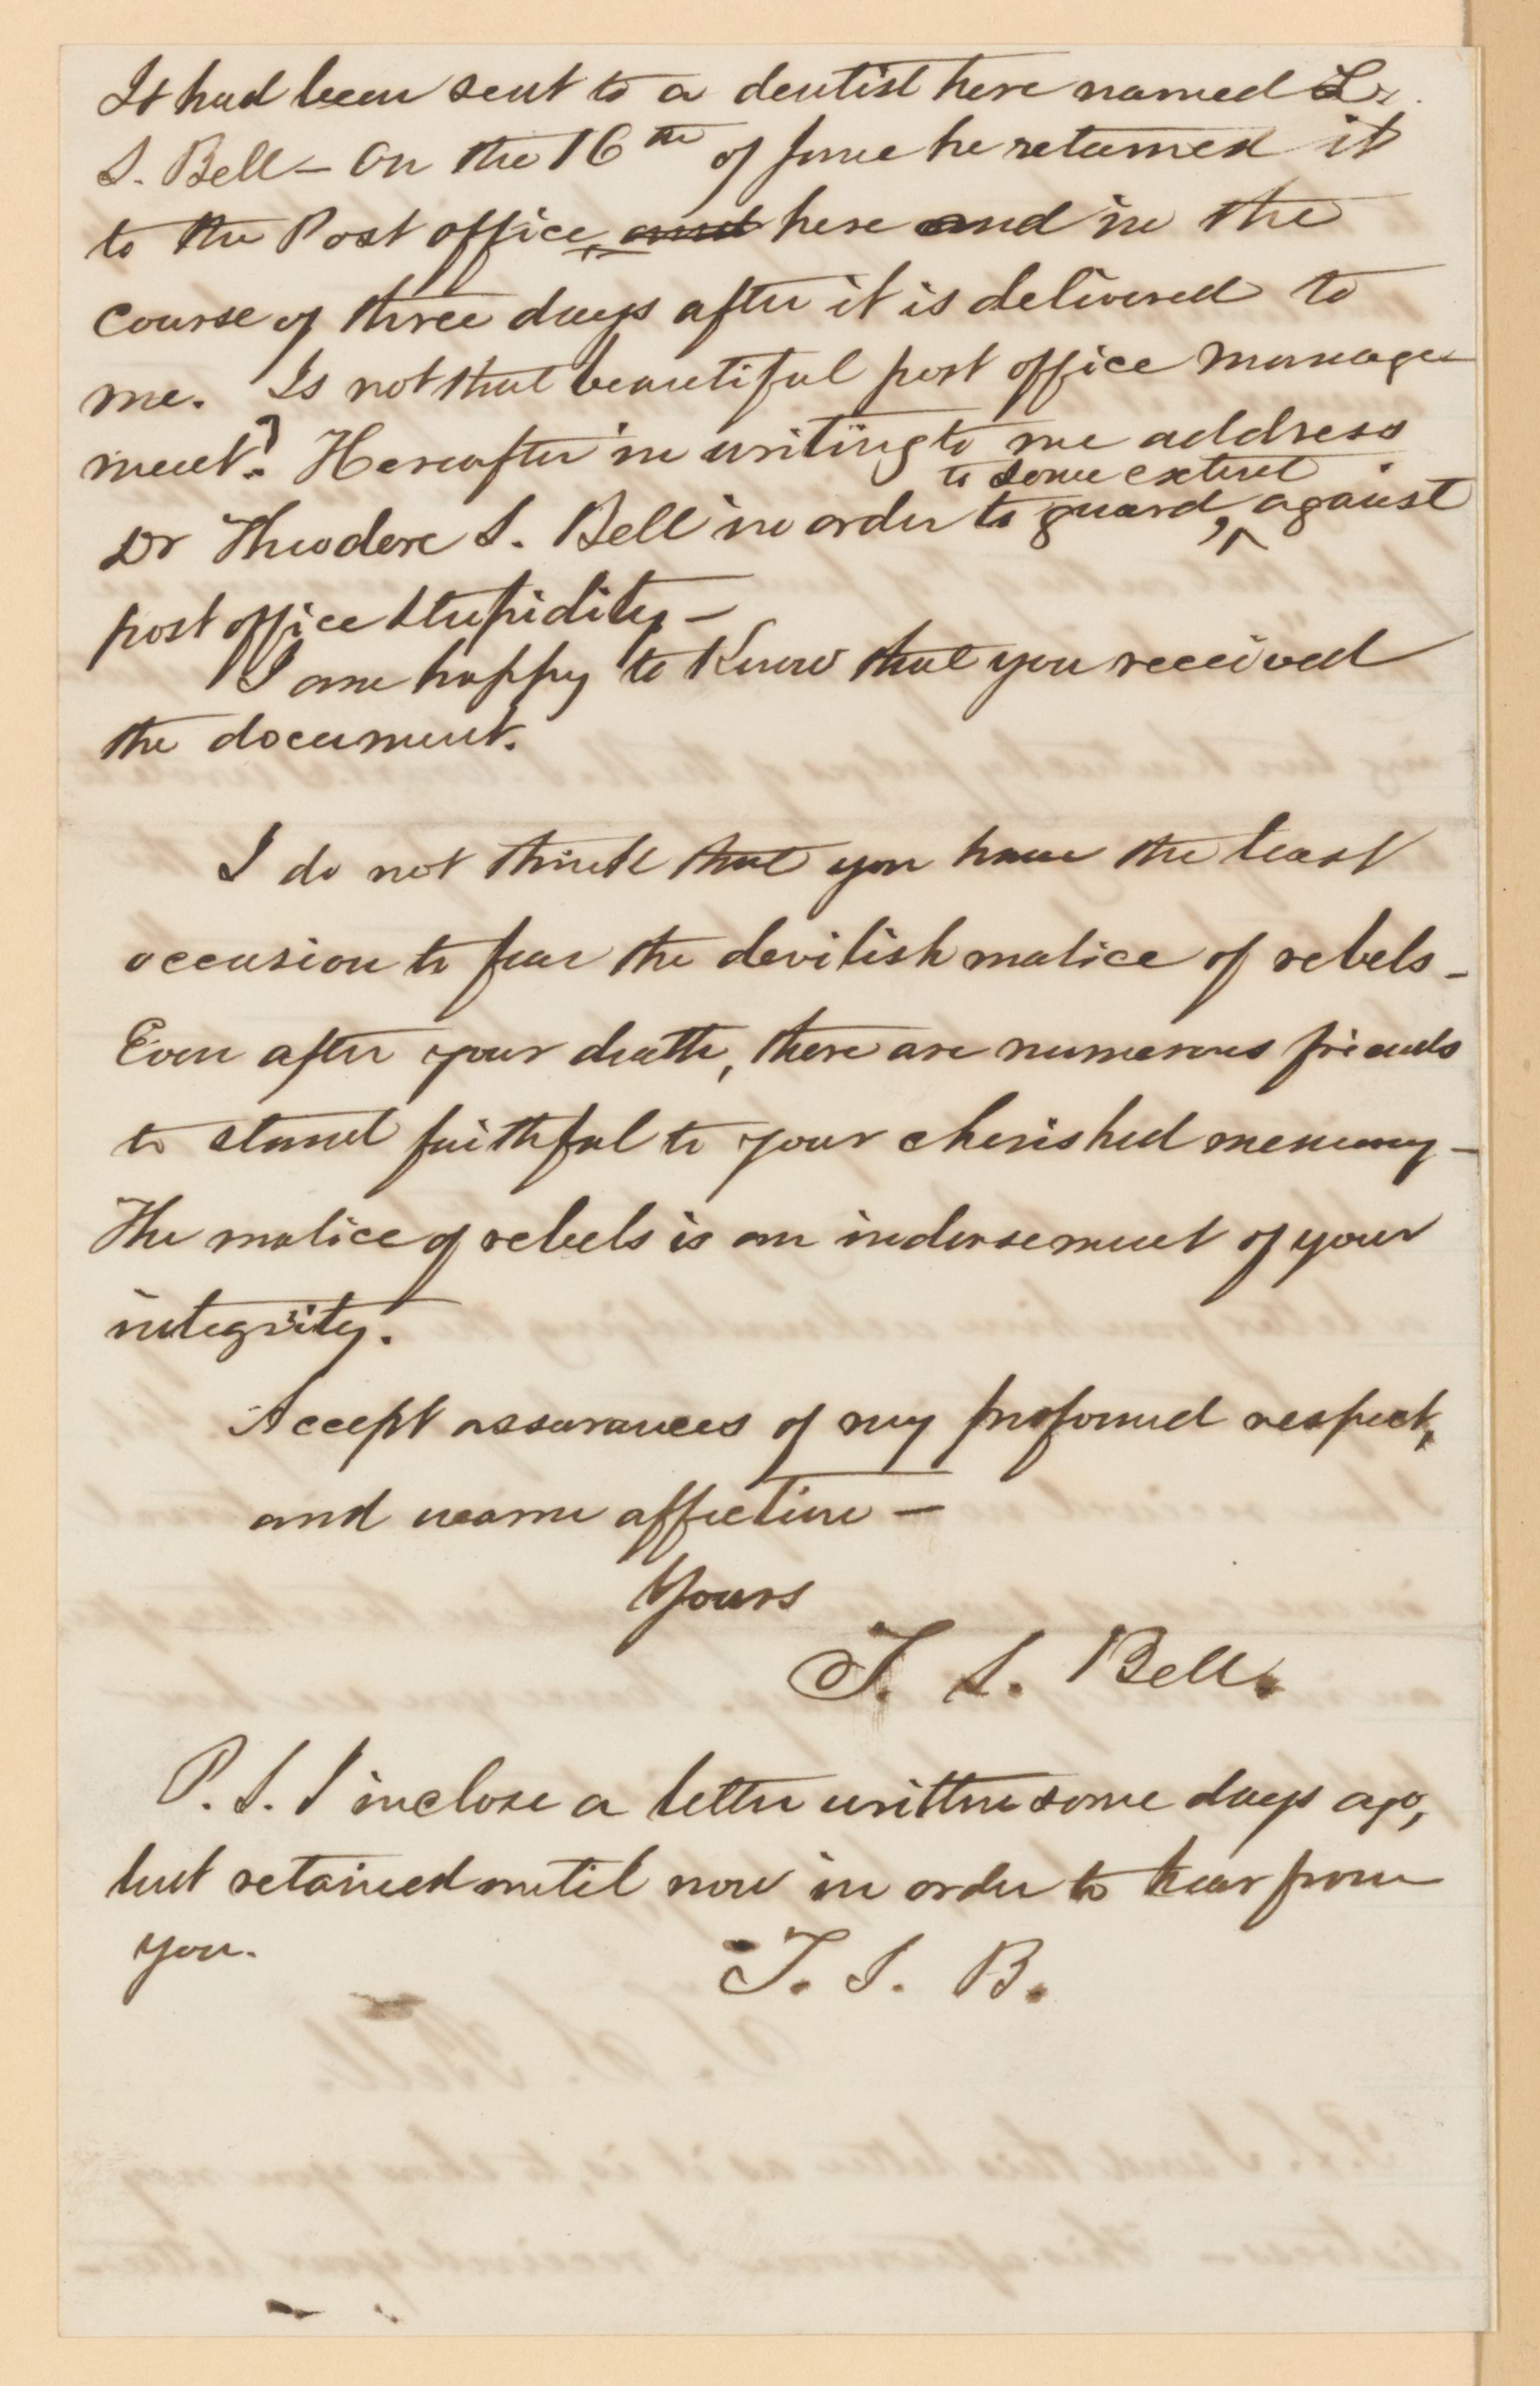 It had been sent to a dentist here named Dr.
S. Bell – On the 16th of June he returned it
to the Post office, and here and in the
course of three days after it is delivered to
me. Is not that beautiful post office manage-
ment? Hereafter in writing to me address
to some extent
Dr Theodore S. Bell in order to guard, ^ against
post office stupidity –
I am happy to know that you received
the document.
I do not think that you have the least
occasion to fear the devilish malice of rebels –
Even after your death, there are numerous friends
to stand faithful to your cherished memory –
The malice of rebels is an indorsement of your
integrity.
Accept assurances of my profound respect,
and warm affection –
Yours
T. S. Bell.
P. S. I inclose a letter written some days ago,
but retained until now in order to hear from
you.
T. S. B.